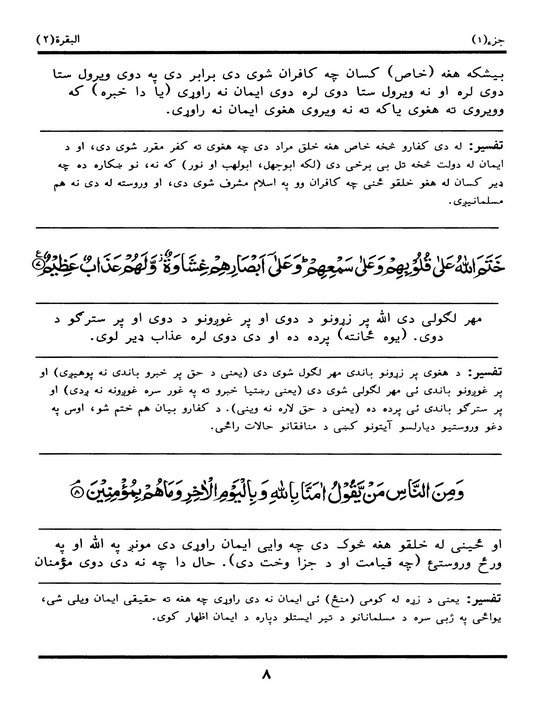 جزء(١) البقرة(٢)
بېشکه هغه (خاص) کسان چه کافران شوی دی برابر دی په دوی ویرول ستا
دوی لره او نه ویرول ستا دوی لره دوی ایمان نه راوړي (یا دا خبره) که
وویروی ته هغوی یاکه ته نه ویروی هغوی ایمان نه راوړی.
تفسیر: له دی کفارو څخه خاص هغه خلق مراد دی چه هغوی ته کفر مقرر شوی دی، او د
ایمان له دولت څخه تل بی برخی دی (لکه ابوجهل، ابولهب او نور) که نه، نو ښکاره ده چه
ډیر کسان له هغو خلقو ځنی چه کافران وو په اسلام مشرف شوی دی، او وروسته له دی نه هم
مسلمانیږي.
خَتَمَ اللهُ عَلٰى قُلُوْبِهِمْ وَعَلٰى سَمْعِهِمْ ؕ وَعَلٰٓى اَبْصَارِهِمْ غِشَاوَةٌ ؗ وَّلَهُمْ عَذَابٌ عَظِيْمٌ ۧ ﴿۷﴾
مهر لګولی دی الله پر زړونو د دوی او پر غوږونو د دوی او پر سترګو د
دوی. (یوه ځانته) پرده ده او دی دوی لره عذاب ډیر لوی.
تفسیر: د هغوی پر زړونو باندی مهر لګول شوی دی (یعنی د حق پر خبرو باندی نه پوهیږی) او
پر غوږونو باندی ئی مهر لګولی شوی دی (یعنی رښتیا خبرو ته په غور سره غوږونه نه ږدی) او
پر سترګو باندی ئی پرده ده (یعنی د حق لاره نه وینی). د کفارو بیان هم ختم شو، اوس په
دغو وروستیو دیارلسو آیتونو کښی د منافقانو حالات راځی.
وَمِنَ النَّاسِ مَنْ يَّقُوْلُ اٰمَنَّا بِاللهِ وَبِالْيَوْمِ الْاٰخِرِ وَمَا هُمْ بِمُؤْمِنِيْنَ ۘ ﴿۸﴾
او ځینی له خلقو هغه څوک دی چه وایی ایمان راوړی دی مونږ په الله او په
ورځ وروستئ (چه قیامت او د جزا وخت دی). حال دا چه نه دی دوی مؤمنان
تفسیر: یعنی د زړه له کومی (منځ) ئی ایمان نه دی راوړی چه هغه ته حقیقی ایمان ویلی شی،
یواځی په ژبی سره د مسلمانانو د تیر ایستلو دپاره د ایمان اظهار کوی.
٨